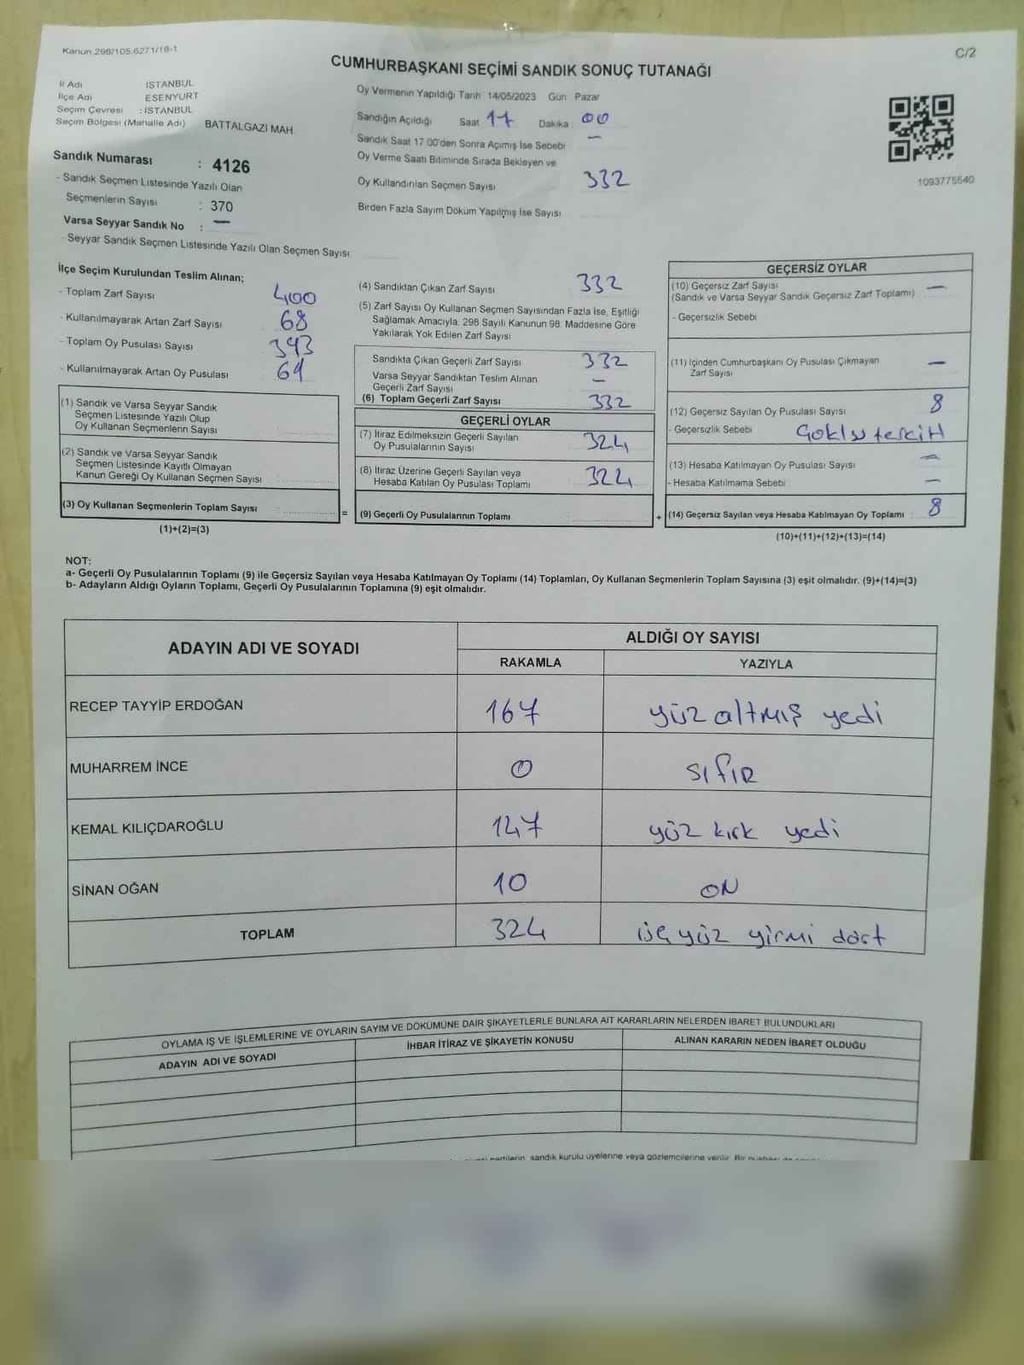 Kanun 298/105.6271/18-1
C/2
CUMHURBAŞKANI SEÇİMİ SANDIK SONUÇ TUTANAĞI
İl Adı : İSTANBUL
İlçe Adı : ESENYURT
Seçim Çevresi : İSTANBUL
Seçim Bölgesi (Mahalle Adı) BATTALGAZİ MAH.
Sandık Numarası : 4126
- Sandık Seçmen Listesinde Yazılı Olan
Seçmenlerin Sayısı : 370
Varsa Seyyar Sandık No : —
- Seyyar Sandık Seçmen Listesinde Yazılı Olan Seçmen Sayısı
Oy Vermenin Yapıldığı Tarih 14/05/2023 Gün Pazar
Sandığın Açıldığı Saat 17 Dakika : 00
Sandık Saat 17.00'den Sonra Açılmış İse Sebebi —
Oy Verme Saati Bitiminde Sırada Bekleyen ve
Oy Kullandırılan Seçmen Sayısı 332
Birden Fazla Sayım Döküm Yapılmış İse Sayısı
1093775540
İlçe Seçim Kurulundan Teslim Alınan;
- Toplam Zarf Sayısı 400
- Kullanılmayarak Artan Zarf Sayısı 68
- Toplam Oy Pusulası Sayısı 393
- Kullanılmayarak Artan Oy Pusulası 61
(1) Sandık ve Varsa Seyyar Sandık
Seçmen Listesinde Yazılı Olup
Oy Kullanan Seçmenlerin Sayısı
(2) Sandık ve Varsa Seyyar Sandık
Seçmen Listesinde Kayıtlı Olmayan
Kanun Gereği Oy Kullanan Seçmen Sayısı
(3) Oy Kullanan Seçmenlerin Toplam Sayısı =
(1)+(2)=(3)
(4) Sandıktan Çıkan Zarf Sayısı 332
(5) Zarf Sayısı Oy Kullanan Seçmen Sayısından Fazla İse, Eşitliği
Sağlamak Amacıyla; 298 Sayılı Kanunun 98. Maddesine Göre
Yakılarak Yok Edilen Zarf Sayısı
Sandıkta Çıkan Geçerli Zarf Sayısı 332
Varsa Seyyar Sandıktan Teslim Alınan
Geçerli Zarf Sayısı —
(6) Toplam Geçerli Zarf Sayısı 332
GEÇERLİ OYLAR
(7) İtiraz Edilmeksizin Geçerli Sayılan
Oy Pusulalarının Sayısı 324
(8) İtiraz Üzerine Geçerli Sayılan veya
Hesaba Katılan Oy Pusulası Toplamı 324
(9) Geçerli Oy Pusulalarının Toplamı +
GEÇERSİZ OYLAR
(10) Geçersiz Zarf Sayısı —
(Sandık ve Varsa Seyyar Sandık Geçersiz Zarf Toplamı)
- Geçersizlik Sebebi
(11) İçinden Cumhurbaşkanı Oy Pusulası Çıkmayan
Zarf Sayısı —
(12) Geçersiz Sayılan Oy Pusulası Sayısı 8
- Geçersizlik Sebebi Çoklu tercih
(13) Hesaba Katılmayan Oy Pusulası Sayısı —
- Hesaba Katılmama Sebebi —
(14) Geçersiz Sayılan veya Hesaba Katılmayan Oy Toplamı : 8
(10)+(11)+(12)+(13)=(14)
NOT:
a- Geçerli Oy Pusulalarının Toplamı (9) ile Geçersiz Sayılan veya Hesaba Katılmayan Oy Toplamı (14) Toplamları, Oy Kullanan Seçmenlerin Toplam Sayısına (3) eşit olmalıdır. (9)+(14)=(3)
b- Adayların Aldığı Oyların Toplamı, Geçerli Oy Pusulalarının Toplamına (9) eşit olmalıdır.
ADAYIN ADI VE SOYADI
ALDIĞI OY SAYISI
RAKAMLA YAZIYLA
RECEP TAYYİP ERDOĞAN 167 yüz altmış yedi
MUHARREM İNCE 0 sıfır
KEMAL KILIÇDAROĞLU 147 yüz kırk yedi
SİNAN OĞAN 10 ON
TOPLAM 324 üç yüz yirmi dört
OYLAMA İŞ VE İŞLEMLERİNE VE OYLARIN SAYIM VE DÖKÜMÜNE DAİR ŞİKAYETLERLE BUNLARA AİT KARARLARIN NELERDEN İBARET BULUNDUKLARI
ADAYIN ADI VE SOYADI
İHBAR İTİRAZ VE ŞİKAYETİN KONUSU
ALINAN KARARIN NEDEN İBARET OLDUĞU
partilerin, sandık kurulu üyelerine veya gözlemcilerine verilir. Bir